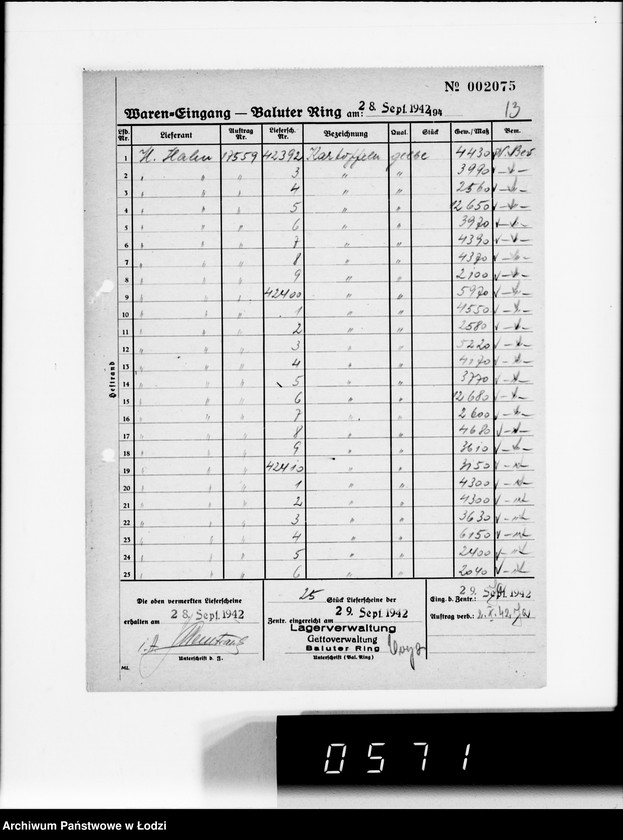 № 002075
Waren=Eingang — Baluter Ring am: 28. Sept. 1942 194 13
Lfd. Nr. Lieferant Auftrag Nr. Liefersch. Nr. Bezeichnung Qual. Stück Gew./Maß Bem.
1 H. Hahn 17559 42392 Kartoffeln gelbe 4430
2 " " " 3 " " 3990
3 " " " 4 " " 2560
4 " " " 5 " " 12650
5 " " " 6 " " 3970
6 " " " 7 " " 4390
7 " " " 8 " " 4370
8 " " " 9 " " 2100
9 " " " 42400 " " 5970
10 " " " 1 " " 4550
11 " " " 2 " " 2580
12 " " " 3 " " 5220
13 " " " 4 " " 4170
14 " " " 5 " " 3770
15 " " " 6 " " 12680
16 " " " 7 " " 2600
17 " " " 8 " " 4680
18 " " " 9 " " 3610
19 " " " 42410 " " 3150
20 " " " 1 " " 4300
21 " " " 2 " " 4300
22 " " " 3 " " 3630
23 " " " 4 " " 6150
24 " " " 5 " " 2400
25 " " " 6 " " 2040
Heftrand
Die oben vermerkten Lieferscheine
erhalten am 28. Sept. 1942
Unterschrift d. Z.
25 Stück Lieferscheine der
Zentr. eingereicht am 29. Sept. 1942
Lagerverwaltung
Gettoverwaltung
Baluter Ring
Unterschrift (Bal. Ring)
Eing. b. Zentr.: 29. Sept. 1942
Auftrag verb.: 2. X. 42
ML.
0571
Archiwum Państwowe w Łodzi